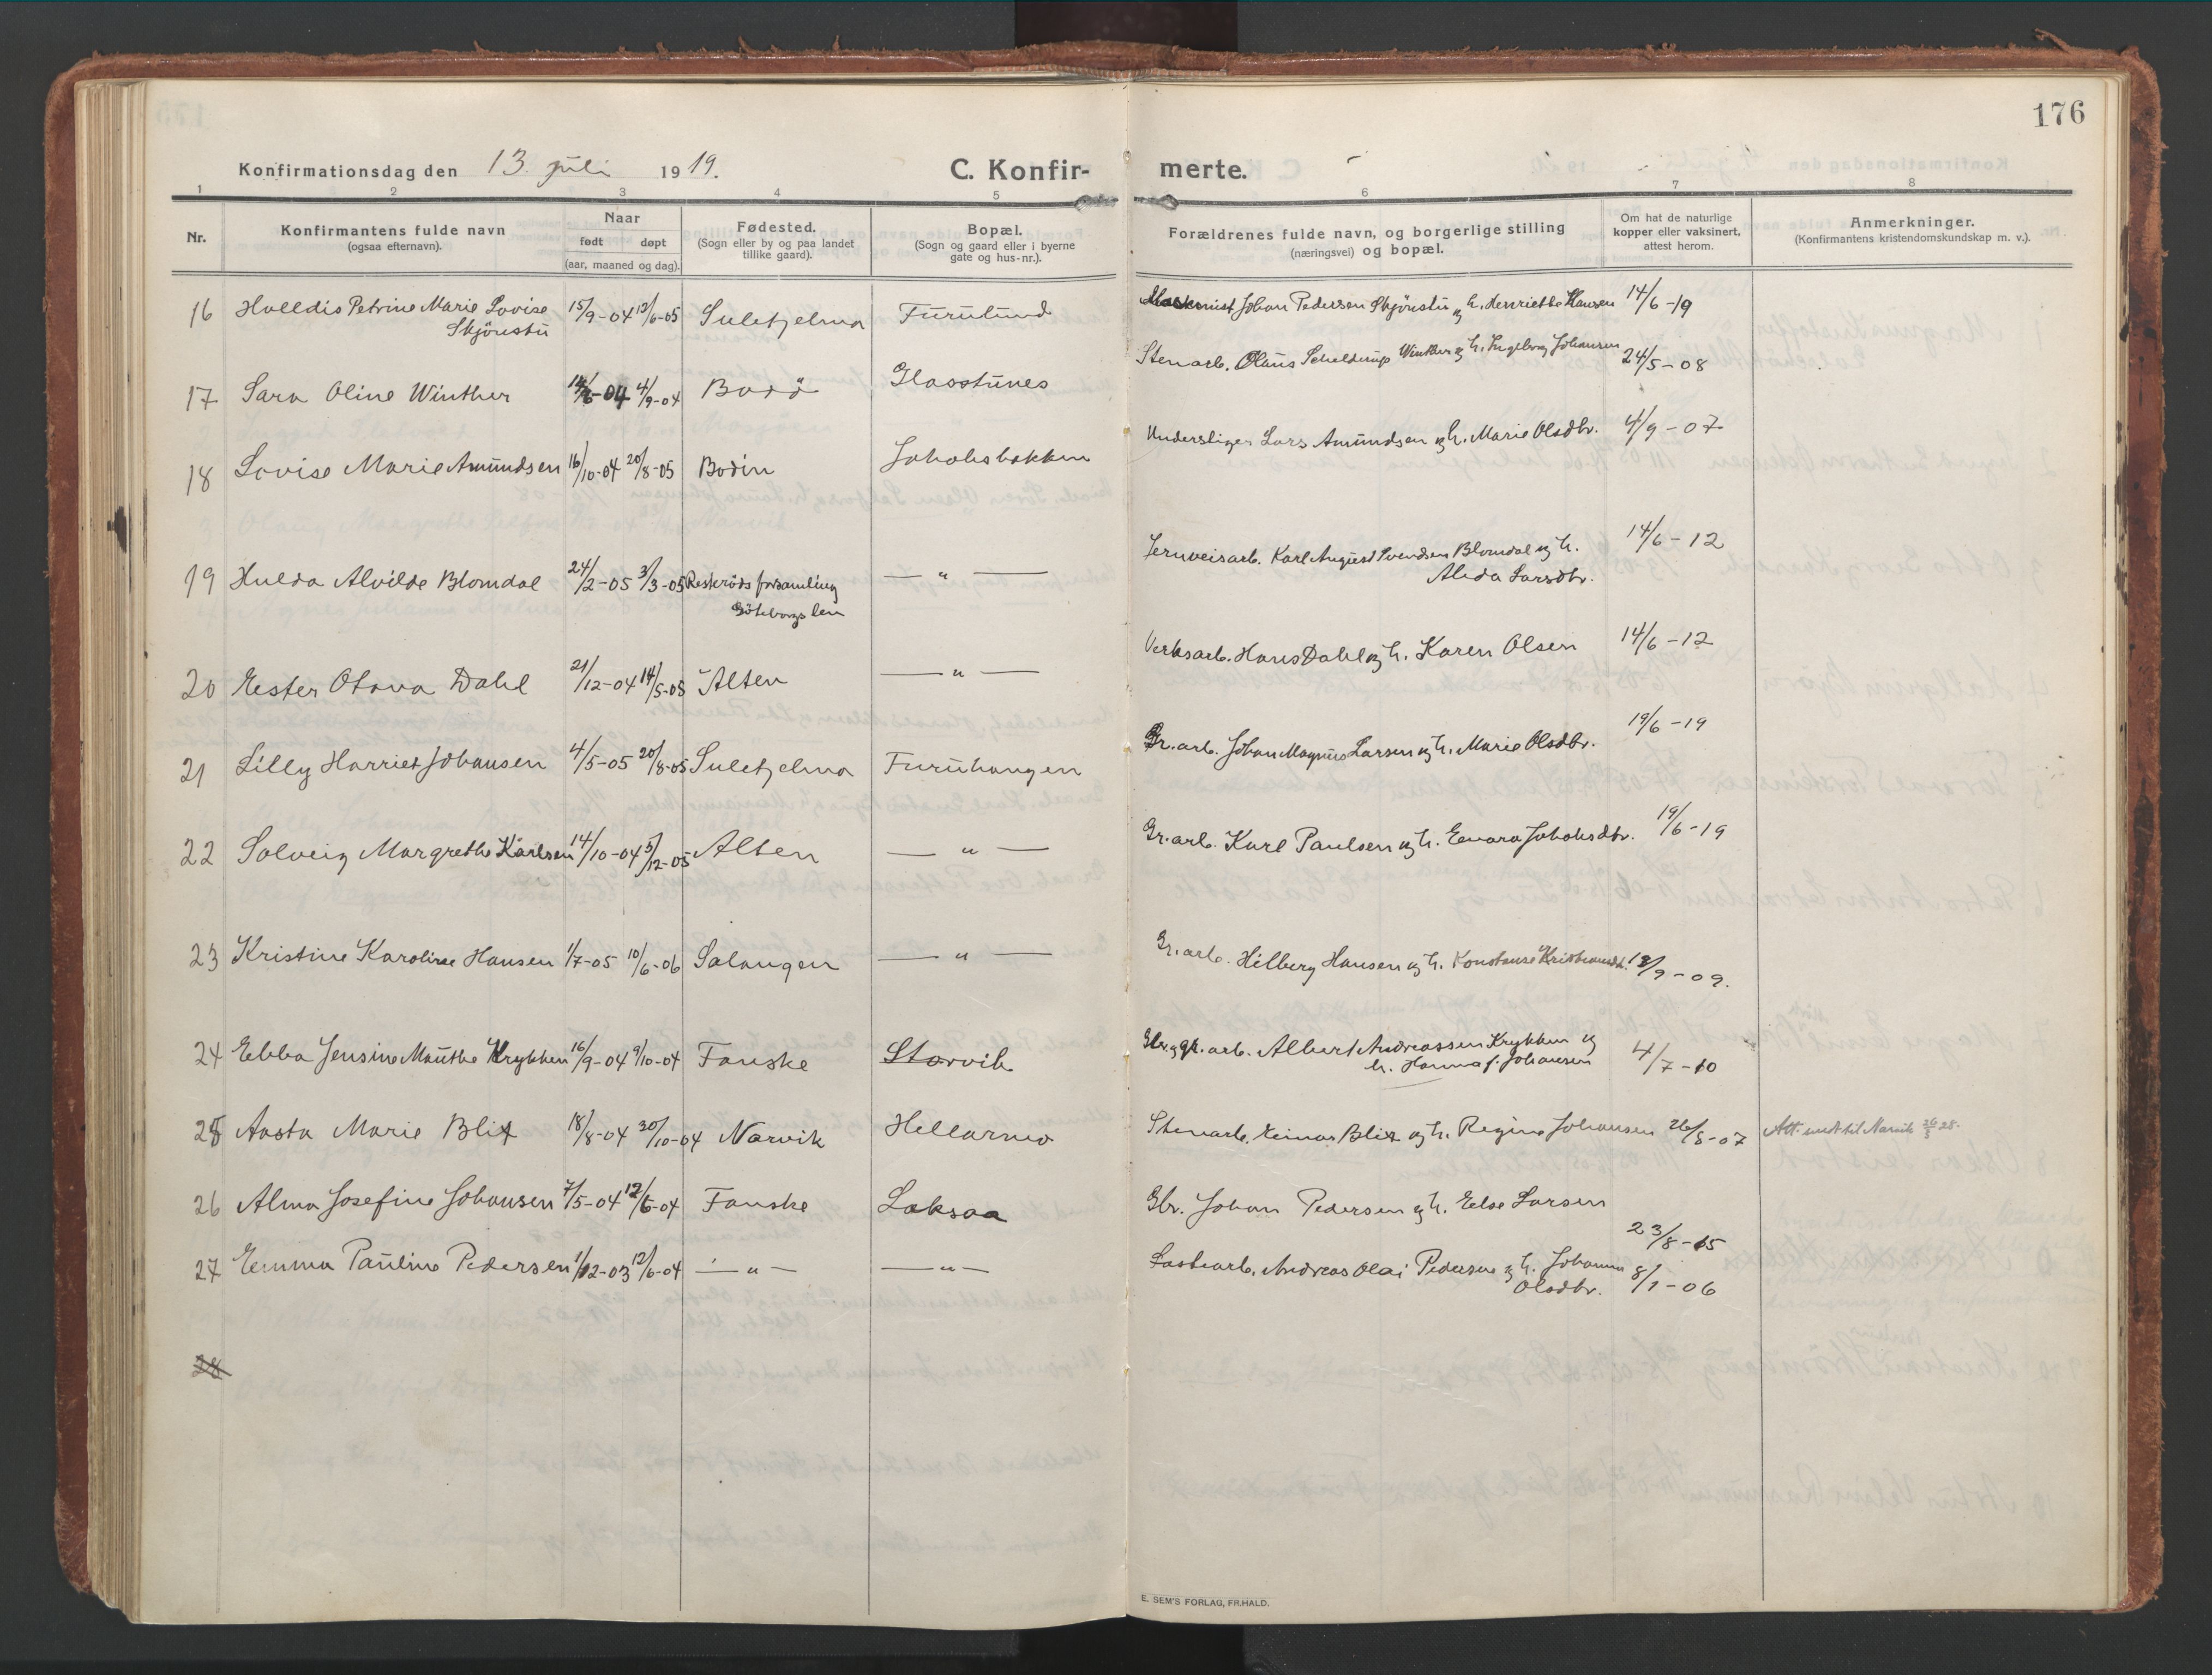 176
Konfirmationsdag den 13. juli 1919. C. Konfir- merte.
1 2 3 4 5 6 7 8
Nr. Konfirmantens fulde navn (ogsaa efternavn). Naar født døpt (aar, maaned og dag). Fødested. (Sogn eller by og paa landet tillike gaard). Bopæl. (Sogn og gaard eller i byerne gate og hus-nr.). Forældrenes fulde navn, og borgerlige stilling (næringsvei) og bopæl. Om hat de naturlige kopper eller vaksinert, attest herom. Anmerkninger. (Konfirmantens kristendomskundskap m. v.).
16 Halldis Petrine Marie Lovise 15/9-04 12/6-05 Sulitjelma Furulund Maskinist Johan Pedersen Skjönstu og h. Henriette Hansen 14/6-19
Skjönstu
17 Sara Oline Winther 04 4/9-04 Bodö Glastunes Stenarb. Olaus Schelderup Winther og h. Ingeborg Johansen 24/5-08
18 Lovise Marie Amundsen 16/10-04 20/8-05 Bodin Jakobsbakken Understiger Lars Amundsen og h. Marie Olsdtr. 4/9-07
19 Hulda Alvilde Blomdal 24/2-05 3/3-05 Resteröds forsamling — " — Jernveisarb. Karl August Svendsen Blomdal og h. 14/6-12
Göteborgs len Alida Larsdtr.
20 Ester Otava Dahl 21/12-04 14/5-05 Alten — " — Verksarb. Hans Dahl og h. Karen Olsen 14/6-12
21 Lilly Harriet Johansen 4/5-05 20/8-05 Sulitjelma Furuhaugen Gr.arb. Johan Magnus Larsen og h. Marie Olsdtr. 19/6-19
22 Solveig Margrethe Karlsen 14/10-04 5/12-05 Alten — " — Gr.arb. Karl Paulsen og h. Evara Jakobsdtr. 19/6-19
23 Kristine Karoline Hansen 1/7-05 10/6-06 Salangen — " — Gr.arb. Hilberg Hansen og h. Konstanse 18/9-09.
24 Ebba Jensine Mauthe Krykken 16/9-04 9/10-04 Fauske Storvik Gbr. og gr.arb. Albert Andreassen Krykken og 4/7-10
h. Hanna f. Johansen
25 Aasta Marie Blix 18/8-04 30/10-04 Narvik Hellarmo Stenarb. Einar Blix og h. Regine Johansen 26/5-07 Att. sendt til Narvik 26/3 28.
26 Alma Josefine Johansen 7/5-04 12/6-04 Fauske Laksaa Gbr. Johan Pedersen og h. Else Larsen
23/8-15
27 Emma Pauline Pedersen 1/12-03 12/6-04 — " — — " — Lastearb. Andreas Olai Pedersen og h. Johanna 8/1-06
Olsdtr.
28
E. SEM'S FORLAG, FR.HALD.